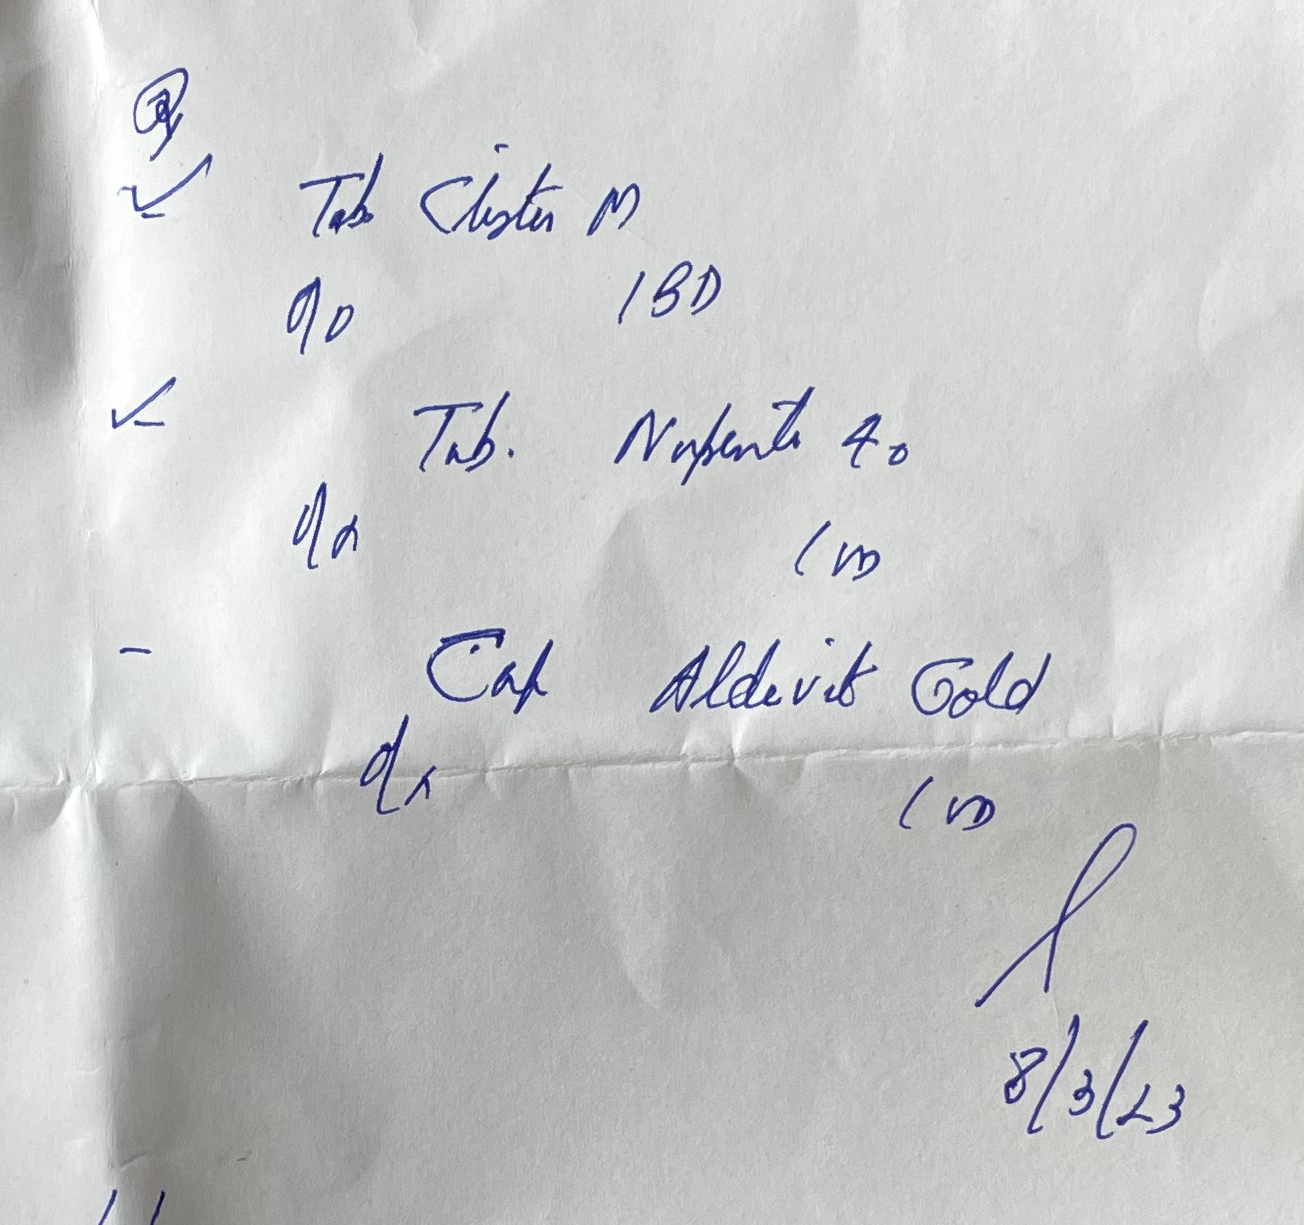 Tab Clister M
1 BD
Tab. Nupenta 40
1 OD
Cap Aldevit Gold
1 OD
8/3/23